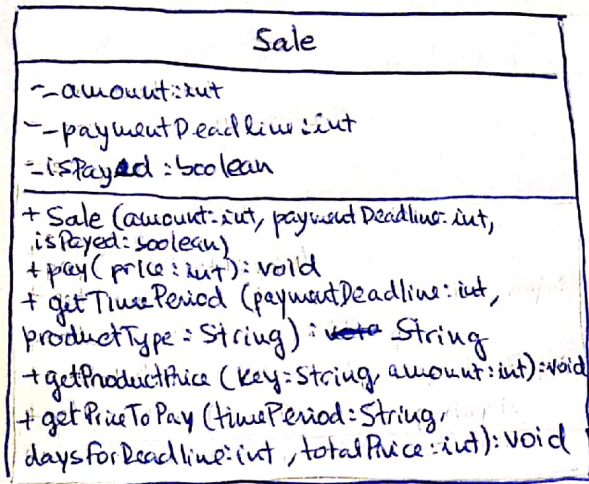 Sale
- amount: int
- paymentDeadline: int
- isPayed: boolean
+ Sale (amount: int, paymentDeadline: int,
isPayed: boolean)
+ pay( price: int): void
+ getTimePeriod (paymentDeadline: int,
productType: String): String
+ getProductPrice (key: String, amount: int): void
+ getPriceToPay (timePeriod: String,
daysForDeadline: int, totalPrice: int): void